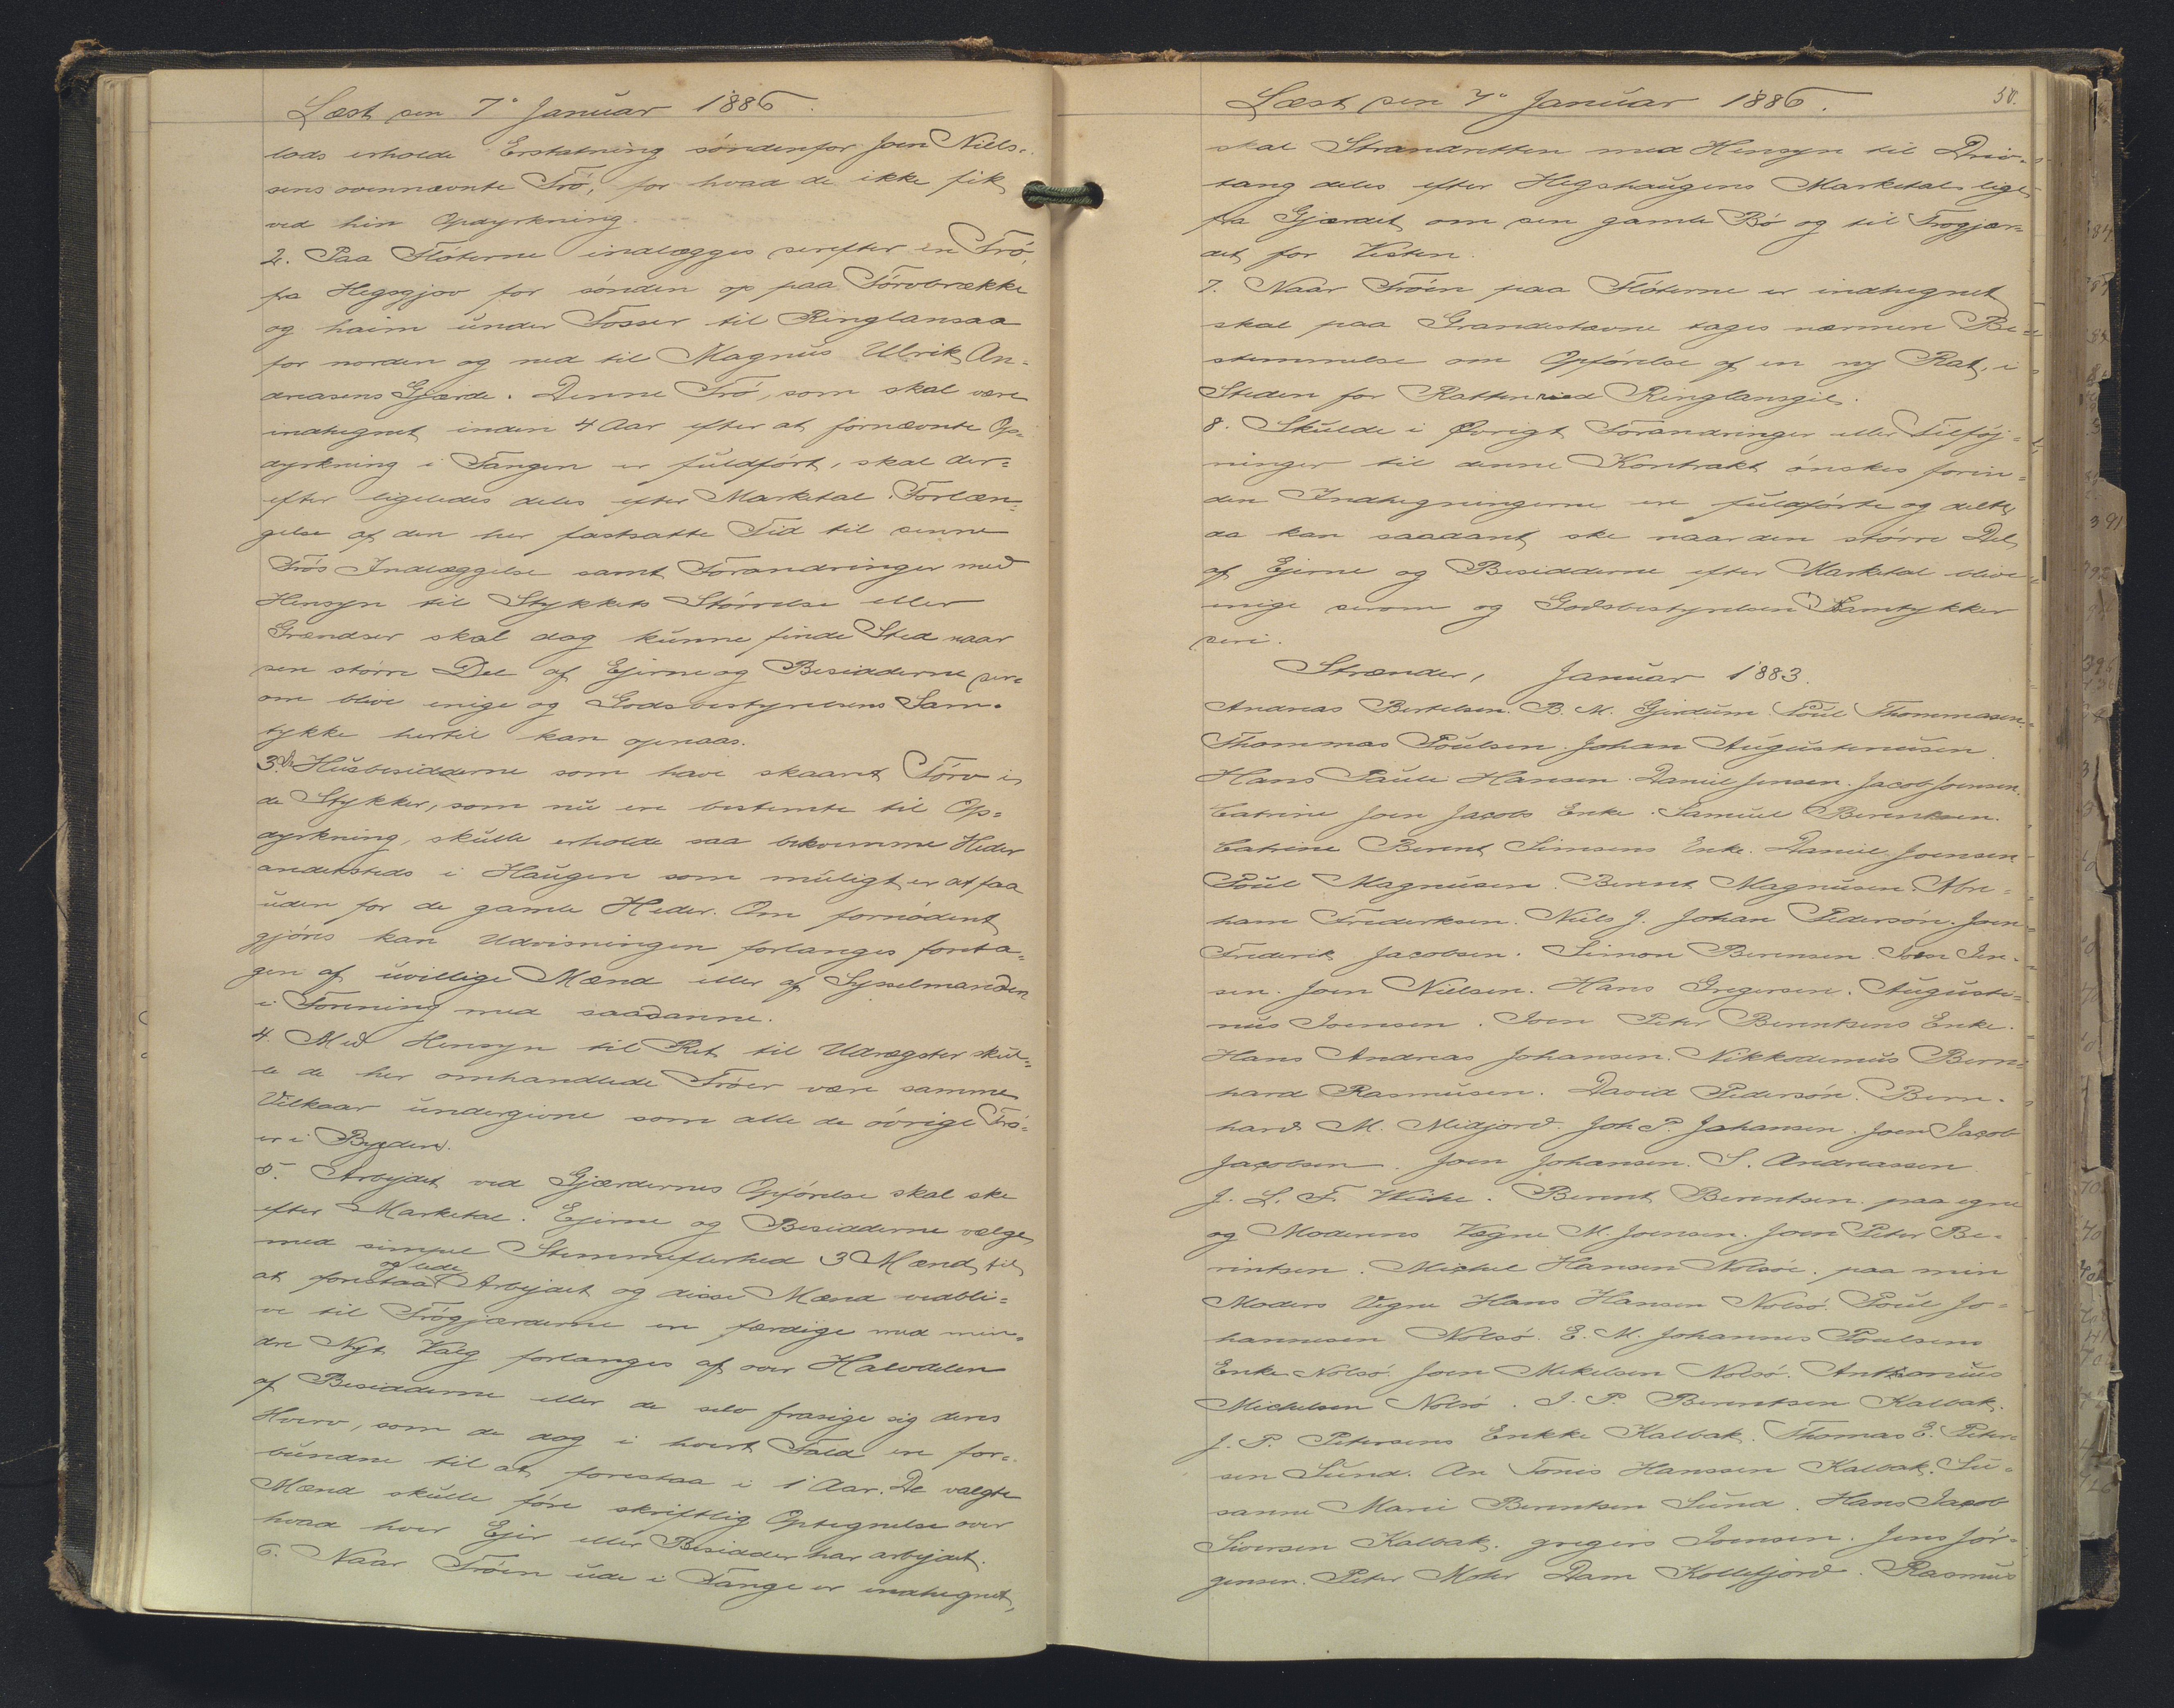 Læst den 7° Januar 1886.
lods erholde Erstatning søndenfor Joen Niels-
sens ovennævnte Trø, for hvad de ikke fik
ved hin Opdyrkning.
2. Paa Fløterne indlægges derefter en Trø,
fra Hegsgjov for sønden op paa Tórvbrække
og haim under Fosser til Ringlansaa
for norden og ned til Magnus Ulrik An-
dreasens Gjærde. Denne Trø, som skal være
indhegnet inden 4 Aar efter at førnævnte Op-
dyrkning i Tangen er fuldført, skal der-
efter ligeledes deles efter Marketal. Forlæn-
gelse af den her fastsatte Tid til denne
Trøs Indlæggelse samt Forandringer med
Hensyn til Stykkets Størrelse eller
Grændser skal dog kunne finde Sted naar
den større Del af Ejerne og Besidderne der-
om blive enige og Godsbestyrelsens Sam-
tykke hertil kan opnaas.
3. De Husbesidderne som have skaaret Tørv i
de Stykker, som nu ere bestemte til Op-
dyrkning, skulle erholde saa bekvemme Heder
andetsteds i Haugen som muligt er at faa
uden for de gamle Heder. Om fornødent
gjøres kan Udvisningen forlanges foreta-
gen af uvillige Mænd eller af Sysselmanden
i Forening med saadanne.
4 Med Hensyn til Ret til Udrægster skul-
le de her omhandlede Trøer være samme
Vilkaar undergivne som alle de øvrige Trø-
er i Bygden.
5. Arbejdet ved Gjærdernes Opførelse skal ske
efter Marketal. Ejerne og Besidderne vælge
med simpel Stemmeflerhed 3 Mænd til
at forestaa og lede Arbejdet og disse Mænd vedbli-
ve til Trøgjærderne ere færdige med min-
dre Nyt Valg forlanges af over Halvdelen
af Besidderne eller de selv frasige sig deres
Hverv, som de dog i hvert Fald ere for-
bundne til at forestaa i 1 Aar. De valgte
Mænd skulle føre skriftlig Optegnelse over
hvad hver Ejer eller Besidder har arbejdet.
6. Naar Trøen ude i Tange er indhegnet,
Læst den 7° Januar 1886.
50.
skal Strandretten med Hensyn til Driv-
tang deles efter Hegshaugens Marketal lige
fra Gjærdet om den gamle Bø og til Trøgjær-
det for Vesten.
7. Naar Trøen paa Fløterne er indhegnet
skal paa Grandestævne tages nærmere Be-
stemmelse om Opførelse af en ny Rat, i
Steden for Ratten ved Ringlansgil.
8. Skulde i Øvrigt Forandringer eller Tilføj-
ninger til denne Kontrakt ønskes forin-
den Indhegningerne ere fuldførte og delte
da kan saadant ske naar den større Del
af Ejerne og Besidderne efter Marketal blive
enige derom og Godsbestyrelsen Samtykker
deri.
Strænder, Januar 1883.
Andreas Bertelsen. B. M. Gjerdum. Poul Thommasen.
Thommas Poulsen. Johan Augustinusen
Hans Paule Hansen. Daniel Jensen. Jacob Joensen.
Catrine Joen Jacobs Enke. Samuel Berentsen.
Catrine Berent Simsens Enke. Daniel Joensen
Poul Magnusen. Berent Magnusen. Abra-
ham Frederksen. Niels J. Johan Pedersøn. Joen
Frederik Jacobsen. Simon Berensen. Joen Jen-
sen. Joen Nielsen. Hans Gregersen. Augusti-
nus Joensen. Joen Peter Berentsens Enke.
Hans Andreas Johansen. Nikkodemus Bern-
hard Rasmusen. David Pedersøn. Bern-
hard M. Midjord. Joh P. Johansen. Joen Jacob
Jacobsen. Joen Johansen. S. Andreassen
J. L. F. Weihe. Berent Berentsen paa egne
og Moderens Vegne M. Joensen. Joen Peter Be-
rintsen. Michel Hansen Nolsøe. paa min
Moders Vegne Hans Hansen Nolsø. Poul Jo-
hannesen Nolsø. E. M. Johannes Poulsens
Enke Nolsø. Joen Mikelsen Nolsø. Anthonius
Michelsen Nolsø. J. P. Berentsen Kalbak.
J. P. Petersens Enkke Kalbak. Thomas E. Peter-
sen Sund. An Tonis Hanssen Kalbak. Su-
sanne Marie Berentsen Sund. Hans Jacob
Siversen Kalbak. gregers Joensen. Jens Jör-
gensen. Peter Mohr Dam Kollefjord. Rasmus